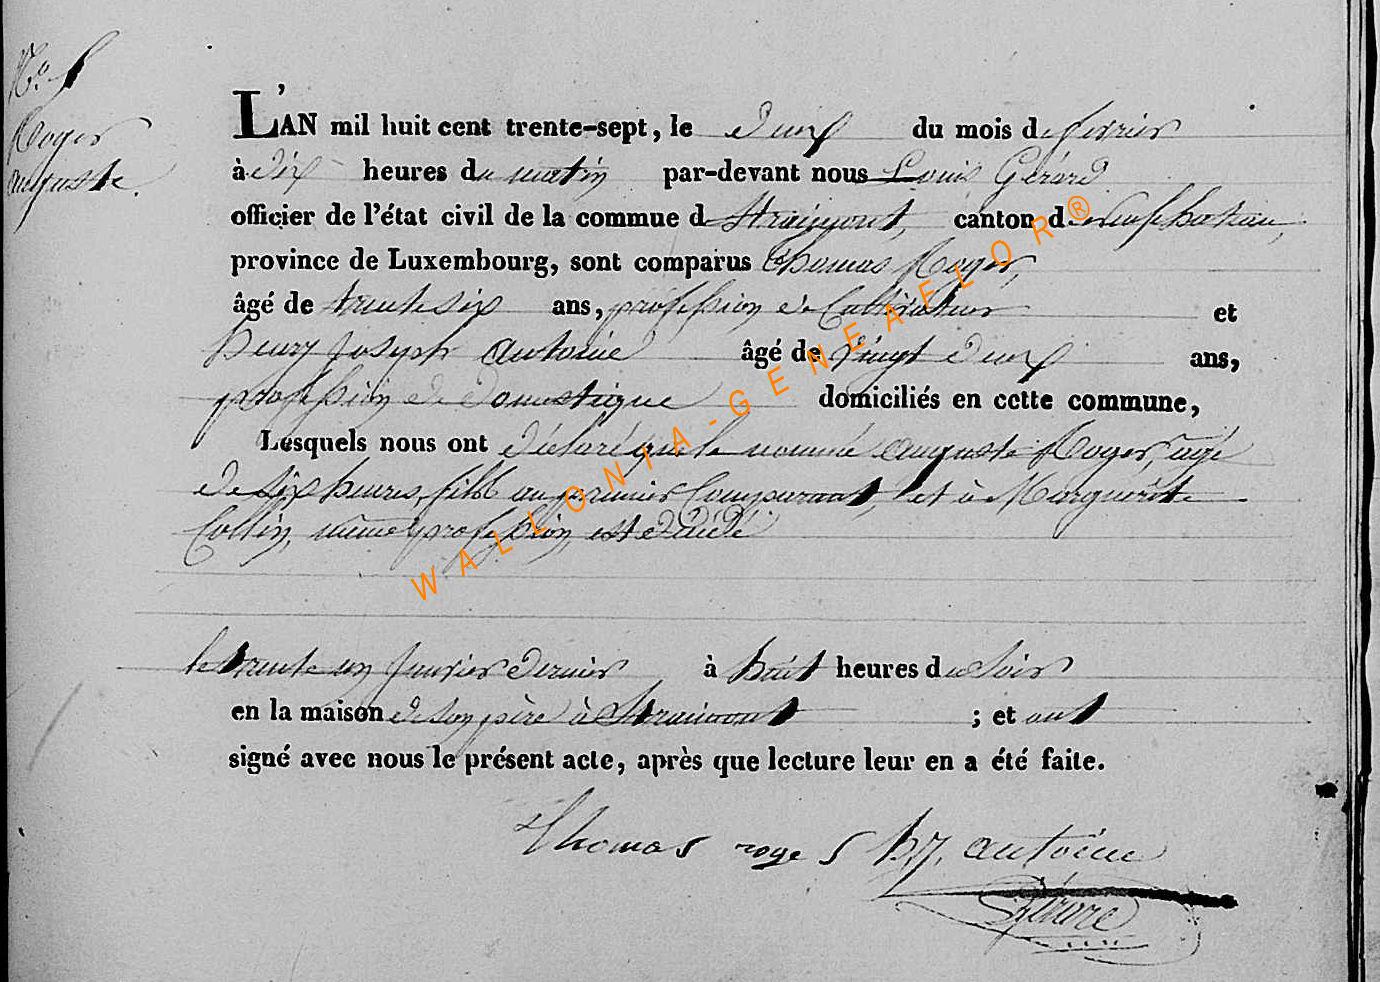 Roger
auguste.
L'AN mil huit cent trente-sept, le deux du mois de fevrier
à dix heures du matin par-devant nous Louis Gérard
officier de l'état civil de la commue de Straimont, canton de neufchateau,
province de Luxembourg, sont comparus Thomas Roger,
âgé de trente six ans, profession de Cultivateur et
henry joseph antoine âgé de vingt deux ans,
profession de domestique domiciliés en cette commune,
Lesquels nous ont déclaré que le nommé auguste Roger, agé
de dix heures, fils au premier Comparant, et à Marguerite
Collin, même profession est décédé
le trente un janvier dernier à huit heures du soir
en la maison de son père à Straimont ; et ont
signé avec nous le présent acte, après que lecture leur en a été faite.
Thomas roger hJ. antoine
Gérard
WALLONIA-GENEAFLOR®